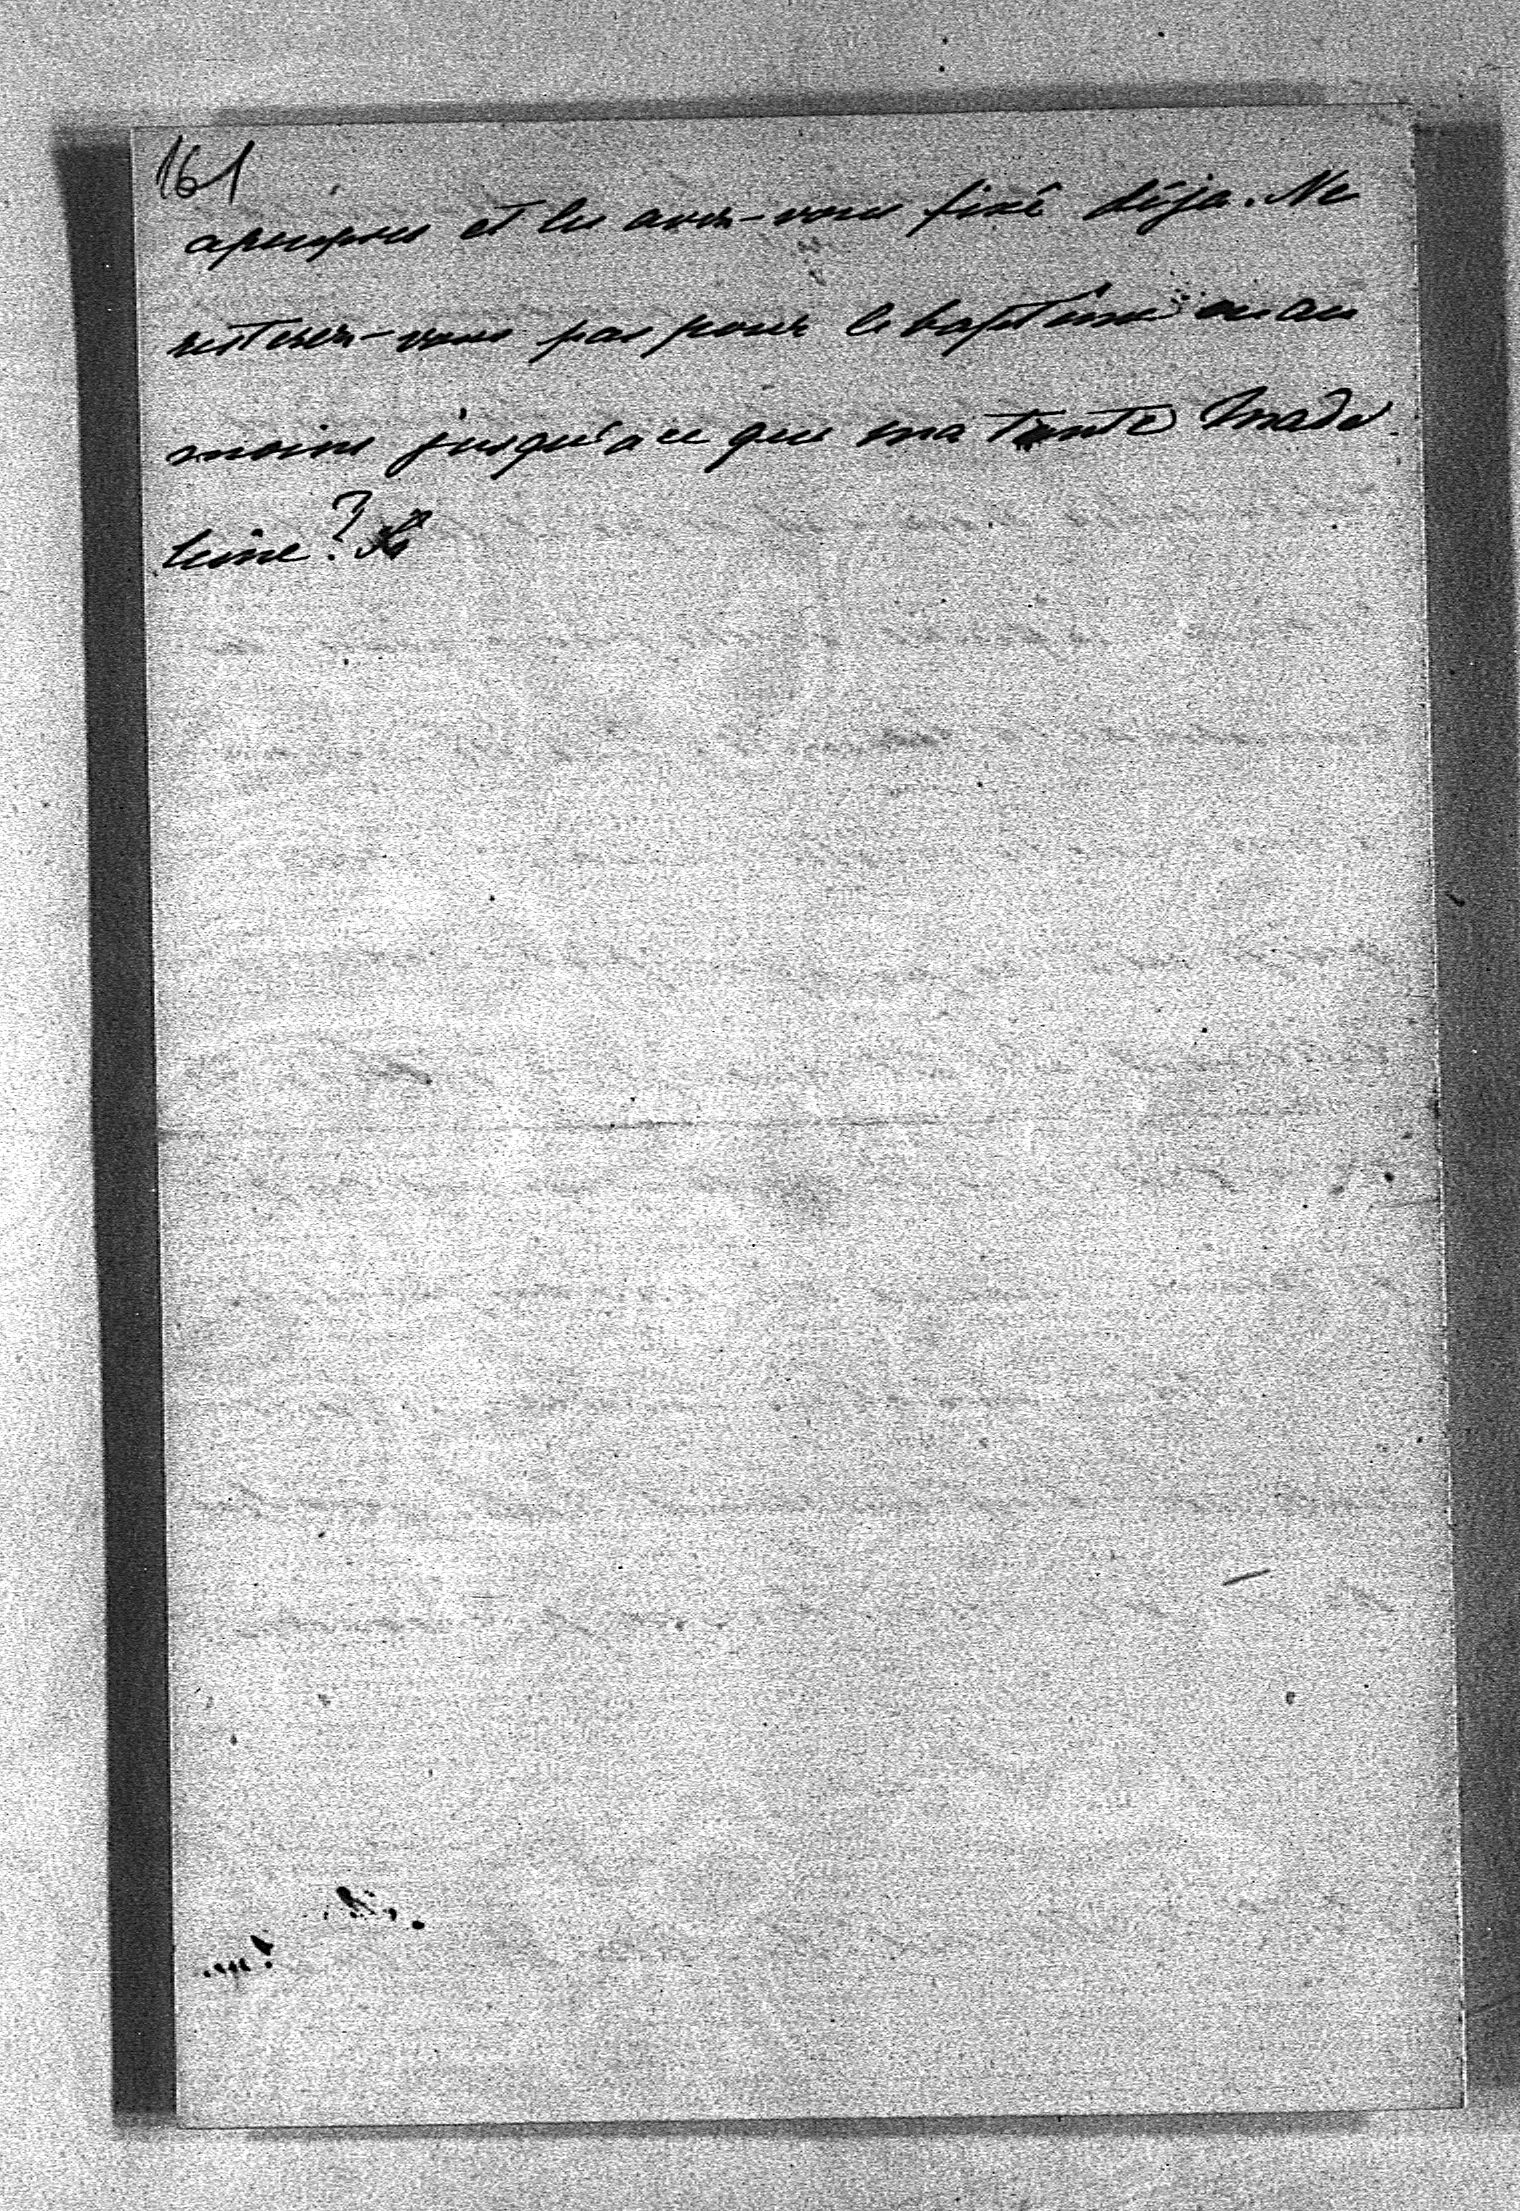 161
apropos et les avez-vous fixé déja. Ne
resterez-vous pas pour le baptême ou au
moins jusqu'a ce que ma tante Made
leine?